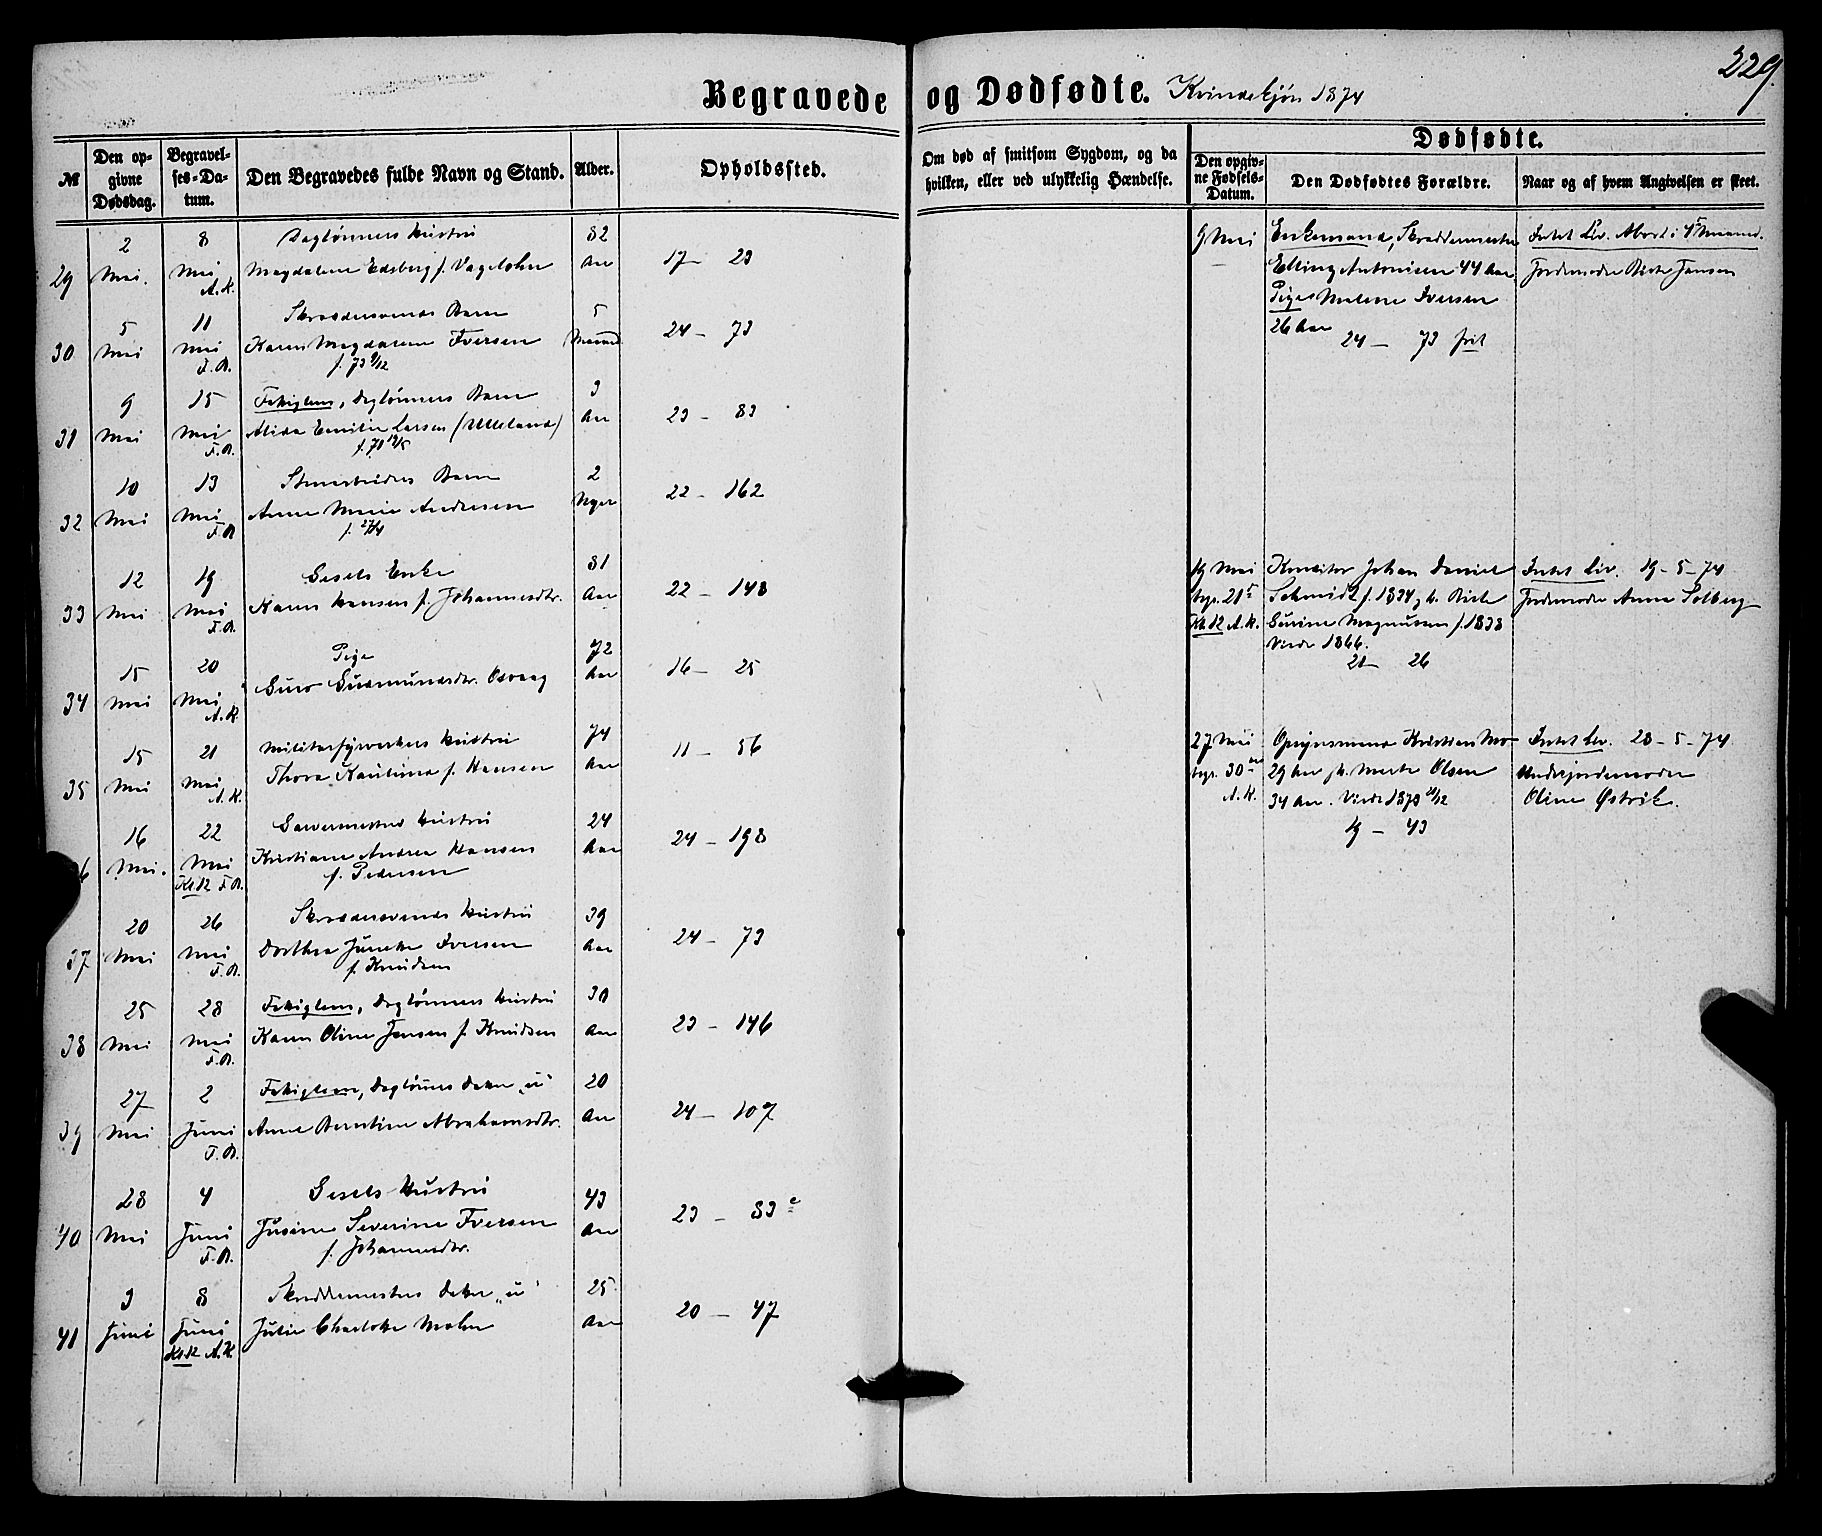 229.
Begravede og Dødfødte. Kvindekjøn 1874
№
Den opgivne Dødsdag.
Begravelses-Datum.
Den Begravedes fulde Navn og Stand.
Alder.
Opholdssted.
Om død af smitsom Sygdom, og da hvilken, eller ved ulykkelig Hændelse.
Dødfødte.
Den opgivne Fødsels-Datum.
Den Dødfødtes Forældre.
Naar og af hvem Angivelsen er skeet.
29
2 Mai.
8 Mai A.K.
Daglønners Hustru
Magdalene Edsberg f. Vagelohn
82 Aar
17 - 23
30
5 Mai
11 Mai F.B.
Skræddersvends Barn
Karen Magdalene Iversen
f. 73 9/12
5 Maaned
24 - 73
31
9 Mai
15 Mai F.B.
Fattiglem, Daglønners Barn
Alida Emilie Larsen (Ulleland)
3 Aar
23 - 83
32
10 Mai
13 Mai F.B.
Stenarbeiders Barn
Anne Marie Andersen
f. 27/4
2 Uger
22 - 162
33
12 Mai
19 Mai F.B.
Gesels Enke
Karen Hansen f. Johannesdtr.
81 Aar
22 - 148
34
15 Mai
20 Mai A.K.
Pige
Guro Gudmundsdtr. Osvaag
72 Aar
16 - 25
35
15 Mai
21 Mai A.K.
Militærfyrverkers Hustru
Thora Kaulund f. Hansen
74 Aar
11 - 56
16 Mai.
22 Mai Kl.12 F.B.
Garvermesters Hustru
Kristiane Andrea Hansen
f. Pedersen
24 Aar
24 - 198
37
20 Mai
26 Mai F.B.
Skræddersvends Hustru
Dorthea Iversen
f. Knudsen
39 Aar
24 - 73
38
25 Mai
28 Mai F.B.
Fattiglem, Daglønners Hustru
Karen Oline Jensen f. Knudsen
30 Aar
23 - 146
39
27 Mai
2 Juni F.B.
Fattiglem, Daglønners Datter "u"
Anne Berntine Abrahamsdtr.
20 Aar
24 - 107
40
28 Mai
4 Juni F.B.
Gesels Hustru
Severine Iversen
f. Johannesdtr.
43 Aar
23 - 83 c
41
3 Juni
8 Juni Kl.12 A.K.
Skræddermesters Datter "u"
Julie Charlotte Mohn
25 Aar
20 - 47
9 Mai
Enkemand, Skræddermester
Elling Antonisen 44 Aar,
Pige Malene Iversen
26 Aar
24 - 73 frit
Intet Liv. Abort i 4 Maaned.
Jordemoder Birte Jansen
19 Mai
begr. 21
Kl.12 A.K.
Konditor Johan Daniel
Schmidt f. 1834, h. Birte
Gurine Magnusen f. 1838
Viede 1866.
21 - 26
Intet Liv. 19-5-74
Jordemoder Anna Solberg
27 Mai
begr. 30
A.K.
Opsynsmand Kristian Mo
29 Aar h. Marte Olsen
34 Aar. Viede 1873 /12
19 - 43
Intet Liv. 28-5-74
Underjordemoder
Oline Østvik.